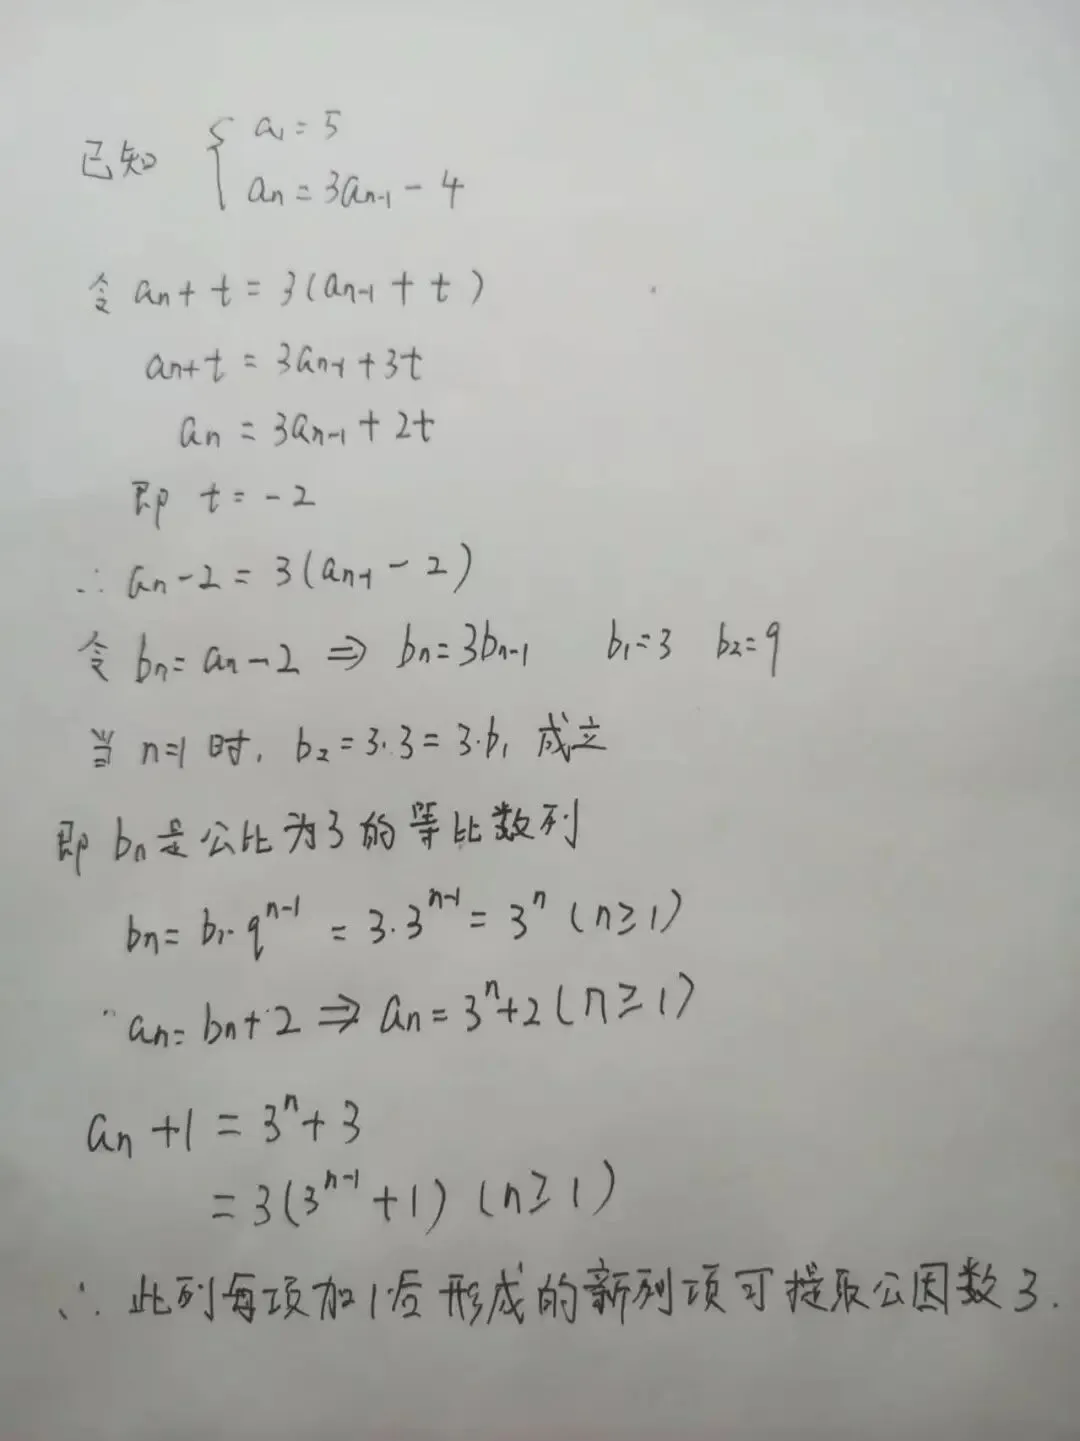 已知 { a₁ = 5
aₙ = 3aₙ₋₁ - 4
令 aₙ + t = 3(aₙ₋₁ + t)
aₙ + t = 3aₙ₋₁ + 3t
aₙ = 3aₙ₋₁ + 2t
即 t = -2
∴ aₙ - 2 = 3(aₙ₋₁ - 2)
令 bₙ = aₙ - 2 ⇒ bₙ = 3bₙ₋₁ b₁ = 3 b₂ = 9
当 n=1 时, b₂ = 3·3 = 3·b₁ 成立
即 bₙ 是公比为3的等比数列
bₙ = b₁·qⁿ⁻¹ = 3·3ⁿ⁻¹ = 3ⁿ (n≥1)
∵ aₙ = bₙ + 2 ⇒ aₙ = 3ⁿ + 2 (n≥1)
aₙ + 1 = 3ⁿ + 3
= 3(3ⁿ⁻¹ + 1) (n≥1)
∴ 此列每项加1后形成的新列项可提取公因数3.